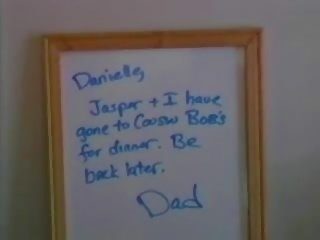 Danielle,
Jasper + I have
gone to Cousin Bob's
for dinner. Be
back later.
Dad